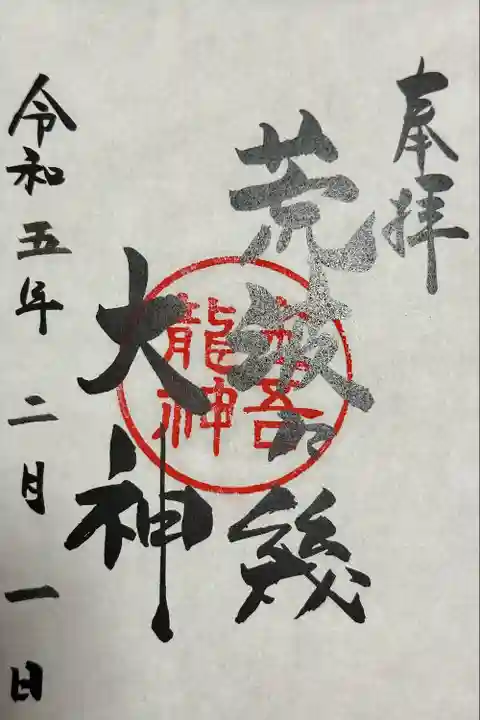 奉拝
荒波々幾
大神
金吾
龍神
令和五年二月一日